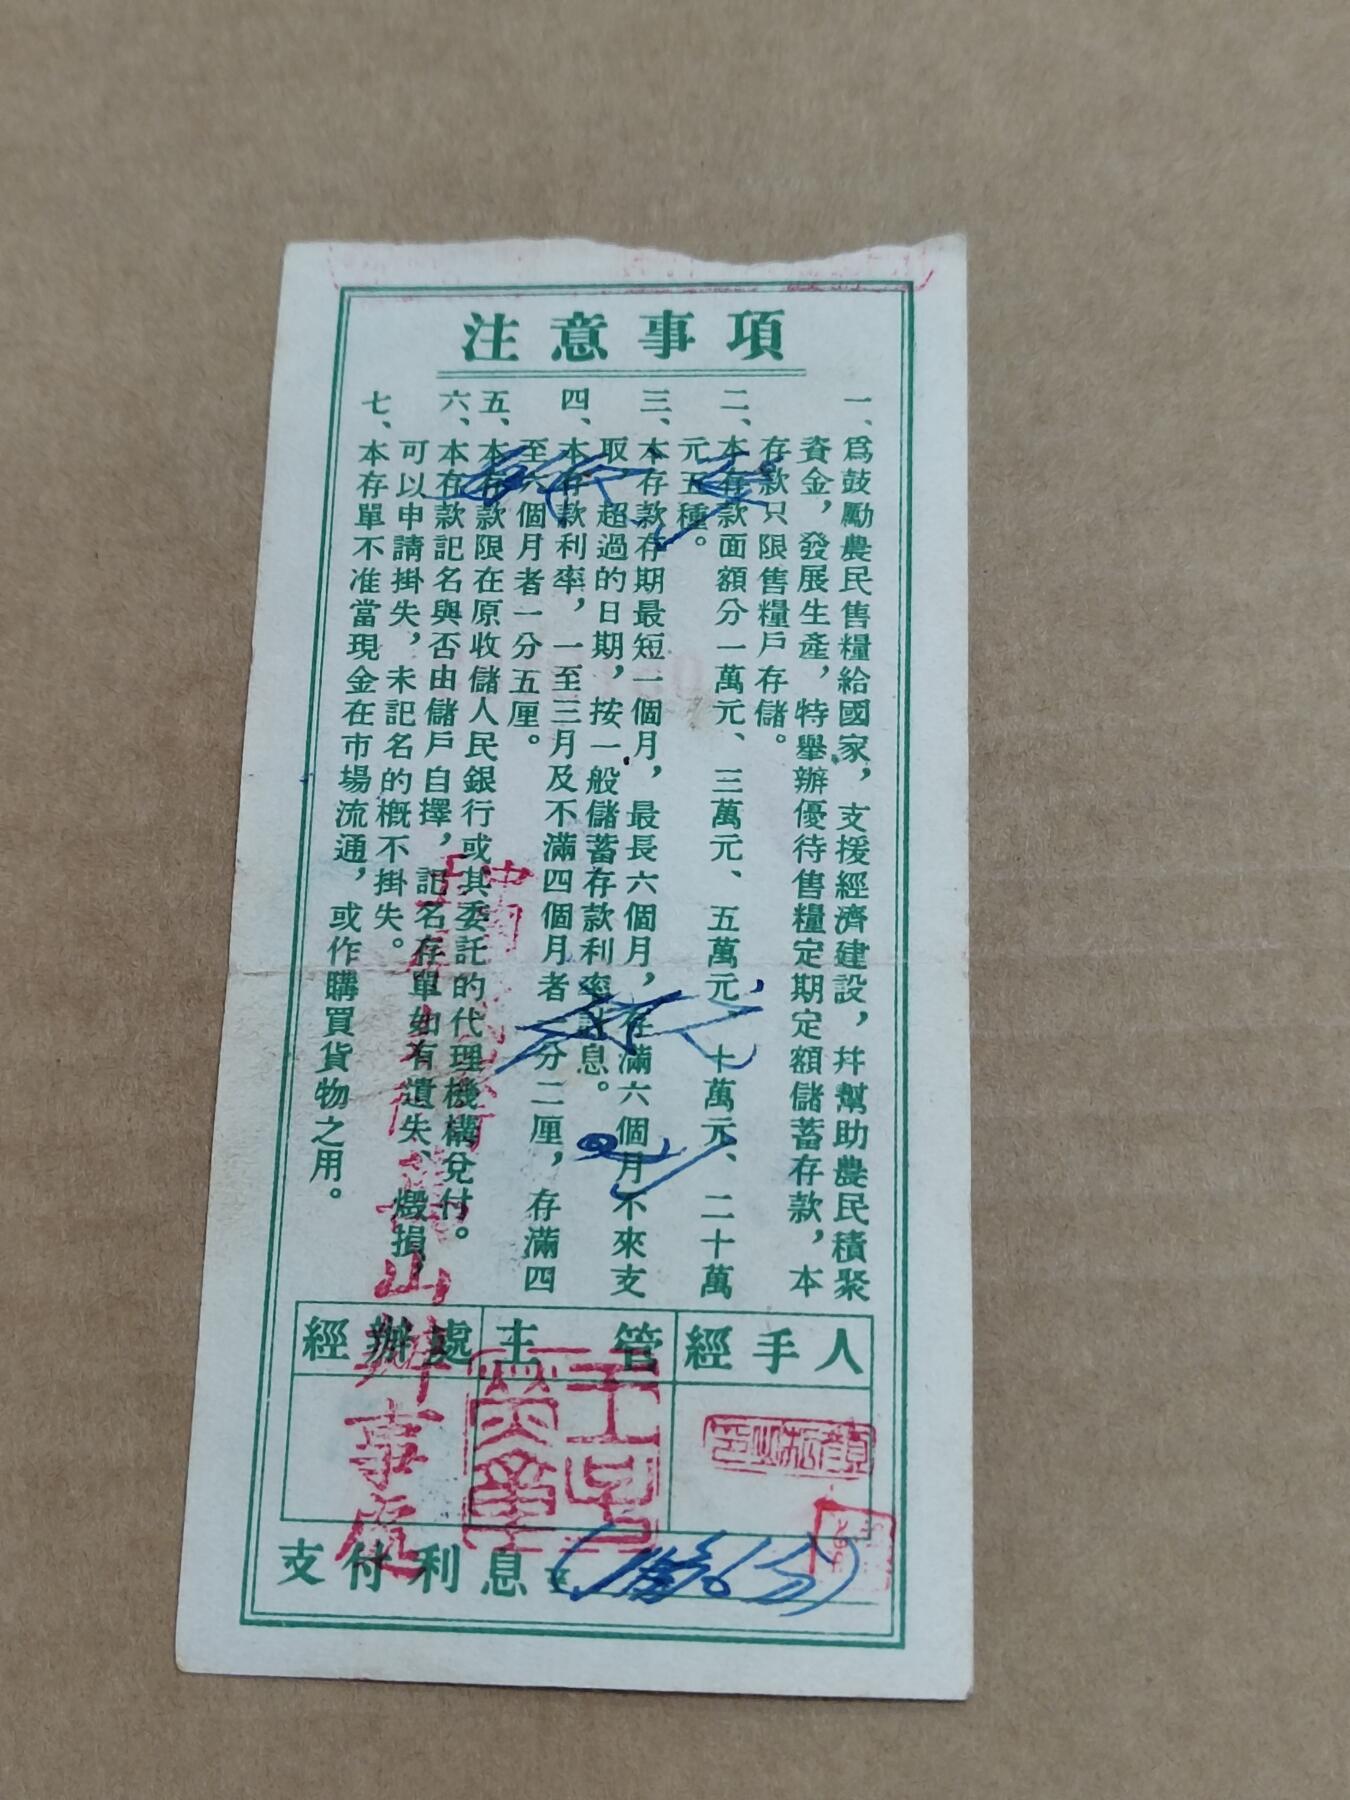 注意事項
一、爲鼓勵農民售糧給國家，支援經濟建設，幷幫助農民積聚
資金，發展生產，特舉辦優待售糧定期定額儲蓄存款，本
存款只限售糧戶存儲。
二、本存款面額分一萬元、三萬元、五萬元、十萬元、二十萬
元五種。
三、本存款存期最短一個月，最長六個月，存滿六個月不來支
取，超過的日期，按一般儲蓄存款利率計息。
四、本存款利率，一至三月及不滿四個月者一分二厘，存滿四
至六個月者一分五厘。
五、本存款限在原收儲人民銀行或其委託的代理機構兌付。
六、本存款記名與否由儲戶自擇，記名存單如有遺失、燬損，
可以申請掛失，未記名的槪不掛失。
七、本存單不准當現金在市場流通，或作購買貨物之用。
經辦處 主管 經手人
山辦事處
支付利息